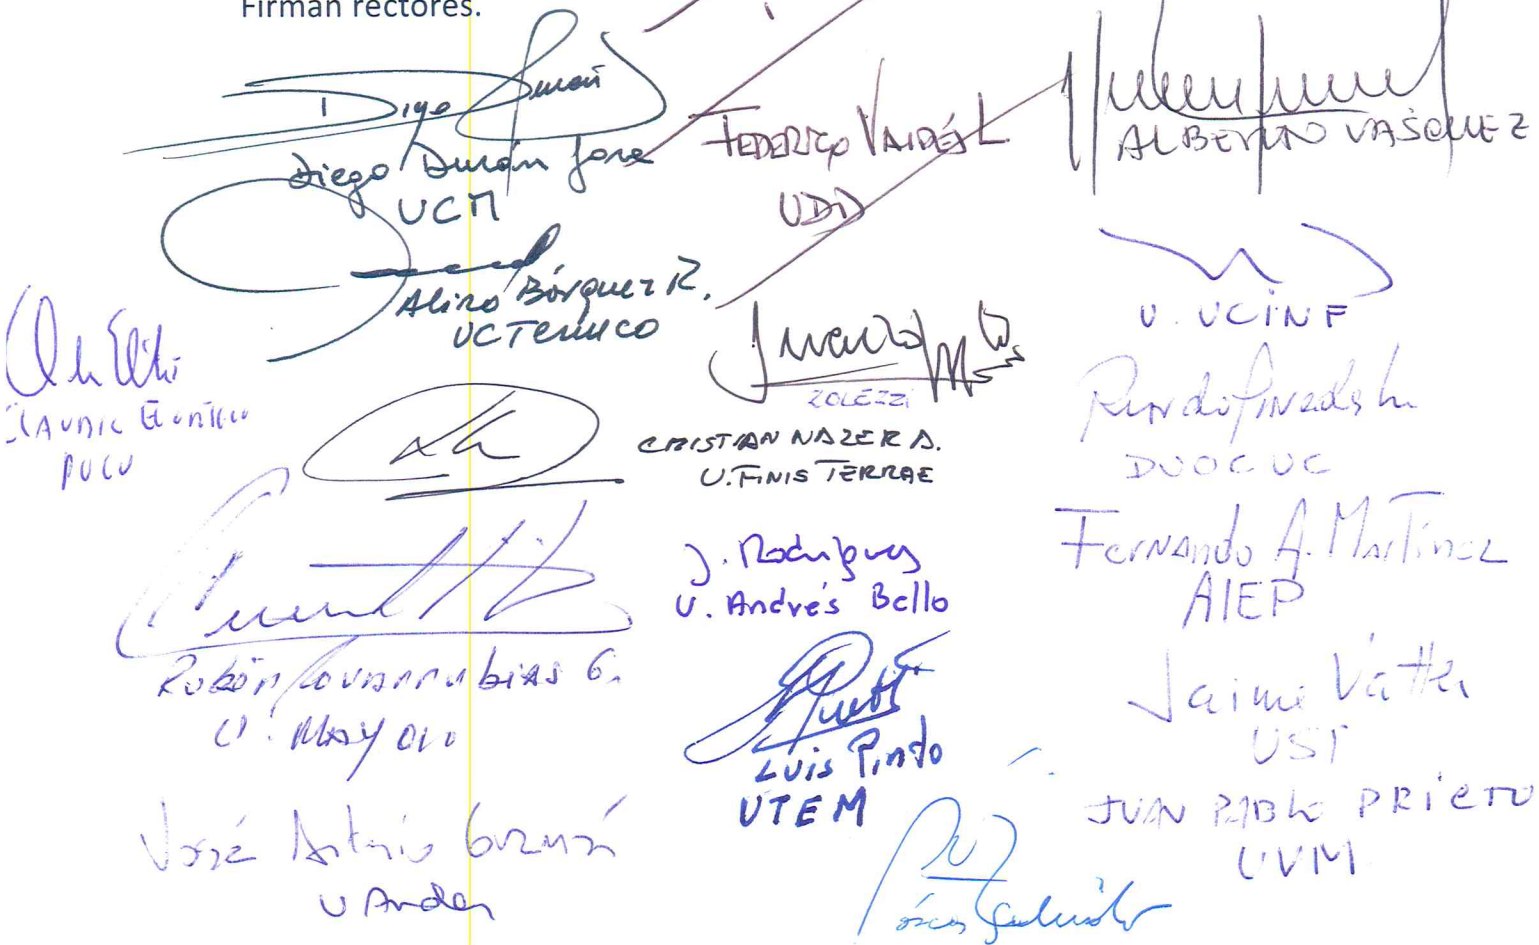 Firman rectores.
Diego Durán
Diego Durán Jara
UCM
FEDERICO VALDÉS L
UDD
ALBERTO VASQUEZ
Aliro Bórquez R.
UCTemuco
U. UCINF
CLAUDIO ELÓRTEGUI
PUCV
ZOLEZZI
CRISTIAN NAZER A.
U. FINIS TERRAE
DUOC UC
J. Rodríguez
U. Andrés Bello
Fernando A. Martínez
AIEP
Rubén Covarrubias G.
U. MAYOR
Luis Pinto
UTEM
Jaime Vatter
UST
JUAN PABLO PRIETO
UVM
José Antonio Guzmán
U Andes